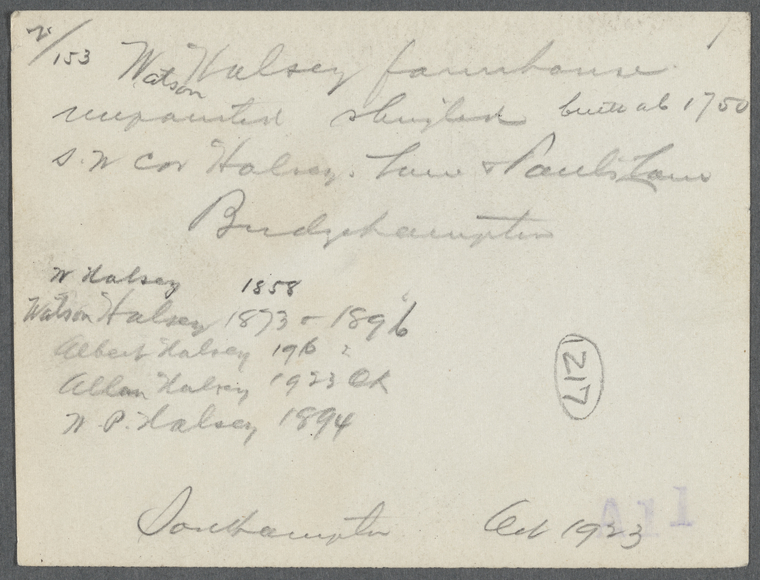 153
Watson Halsey farmhouse
unpainted shingled built ab 1750
S.W cor Halsey. Lane & Paul's Lane
Bridgehampton
W Halsey 1858
Watson Halsey 1873 - 1896
Albert Halsey 1916 ?
Allan Halsey 1923 OK
W. P. Halsey 1894
1217
Southampton Oct 1923
All